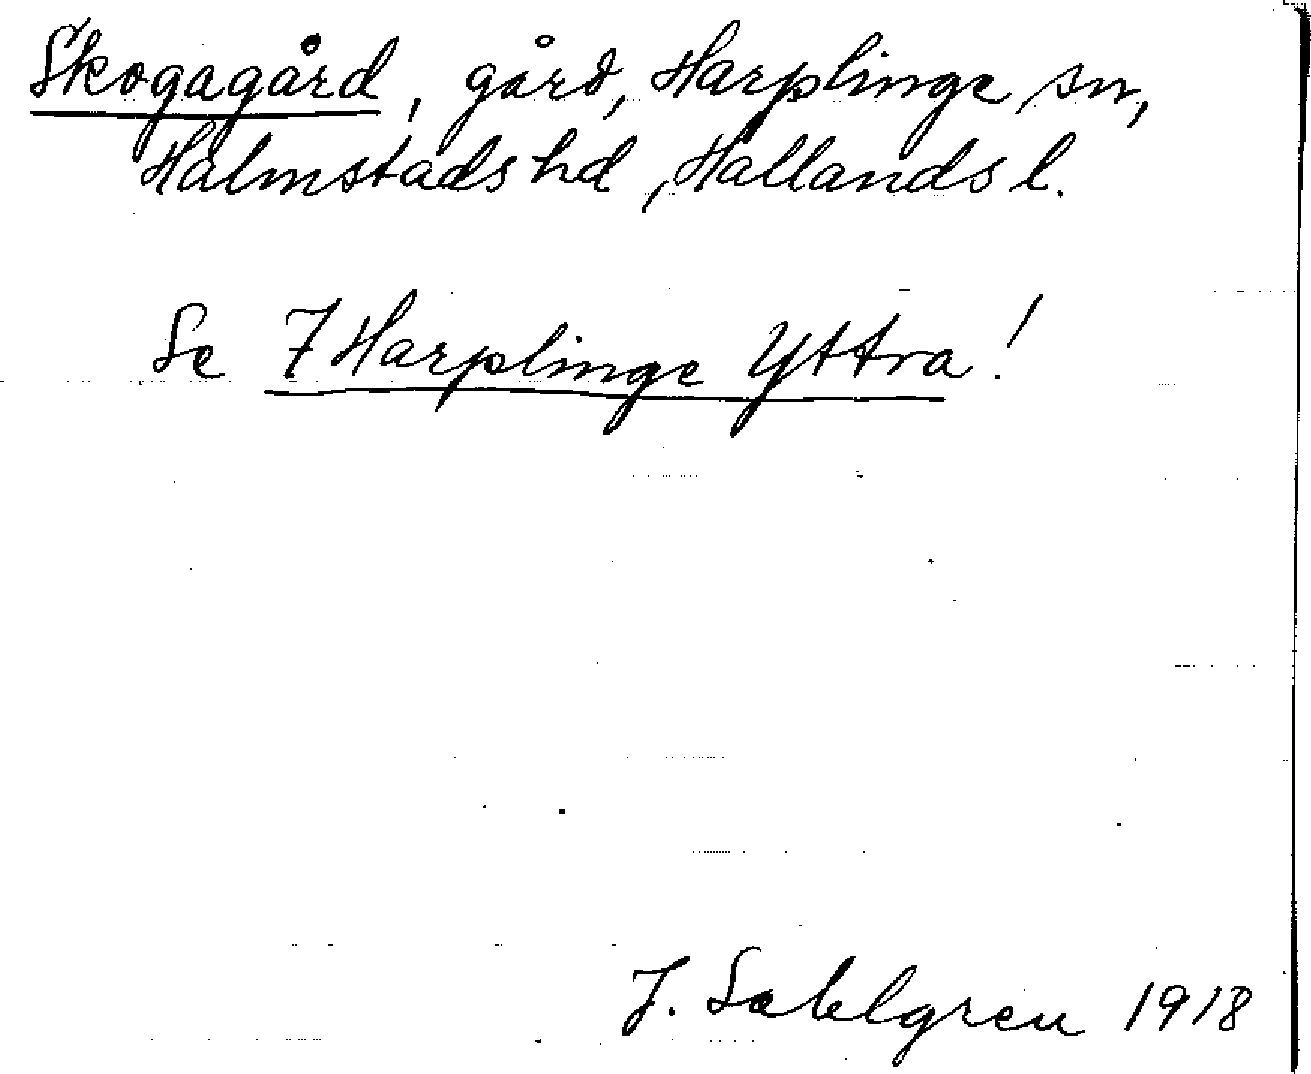 Skogagård, gård, Harplinge sn,
Halmstads hd, Hallands l.
Se 7 Harplinge Yttra!
J. Sahlgren 1918